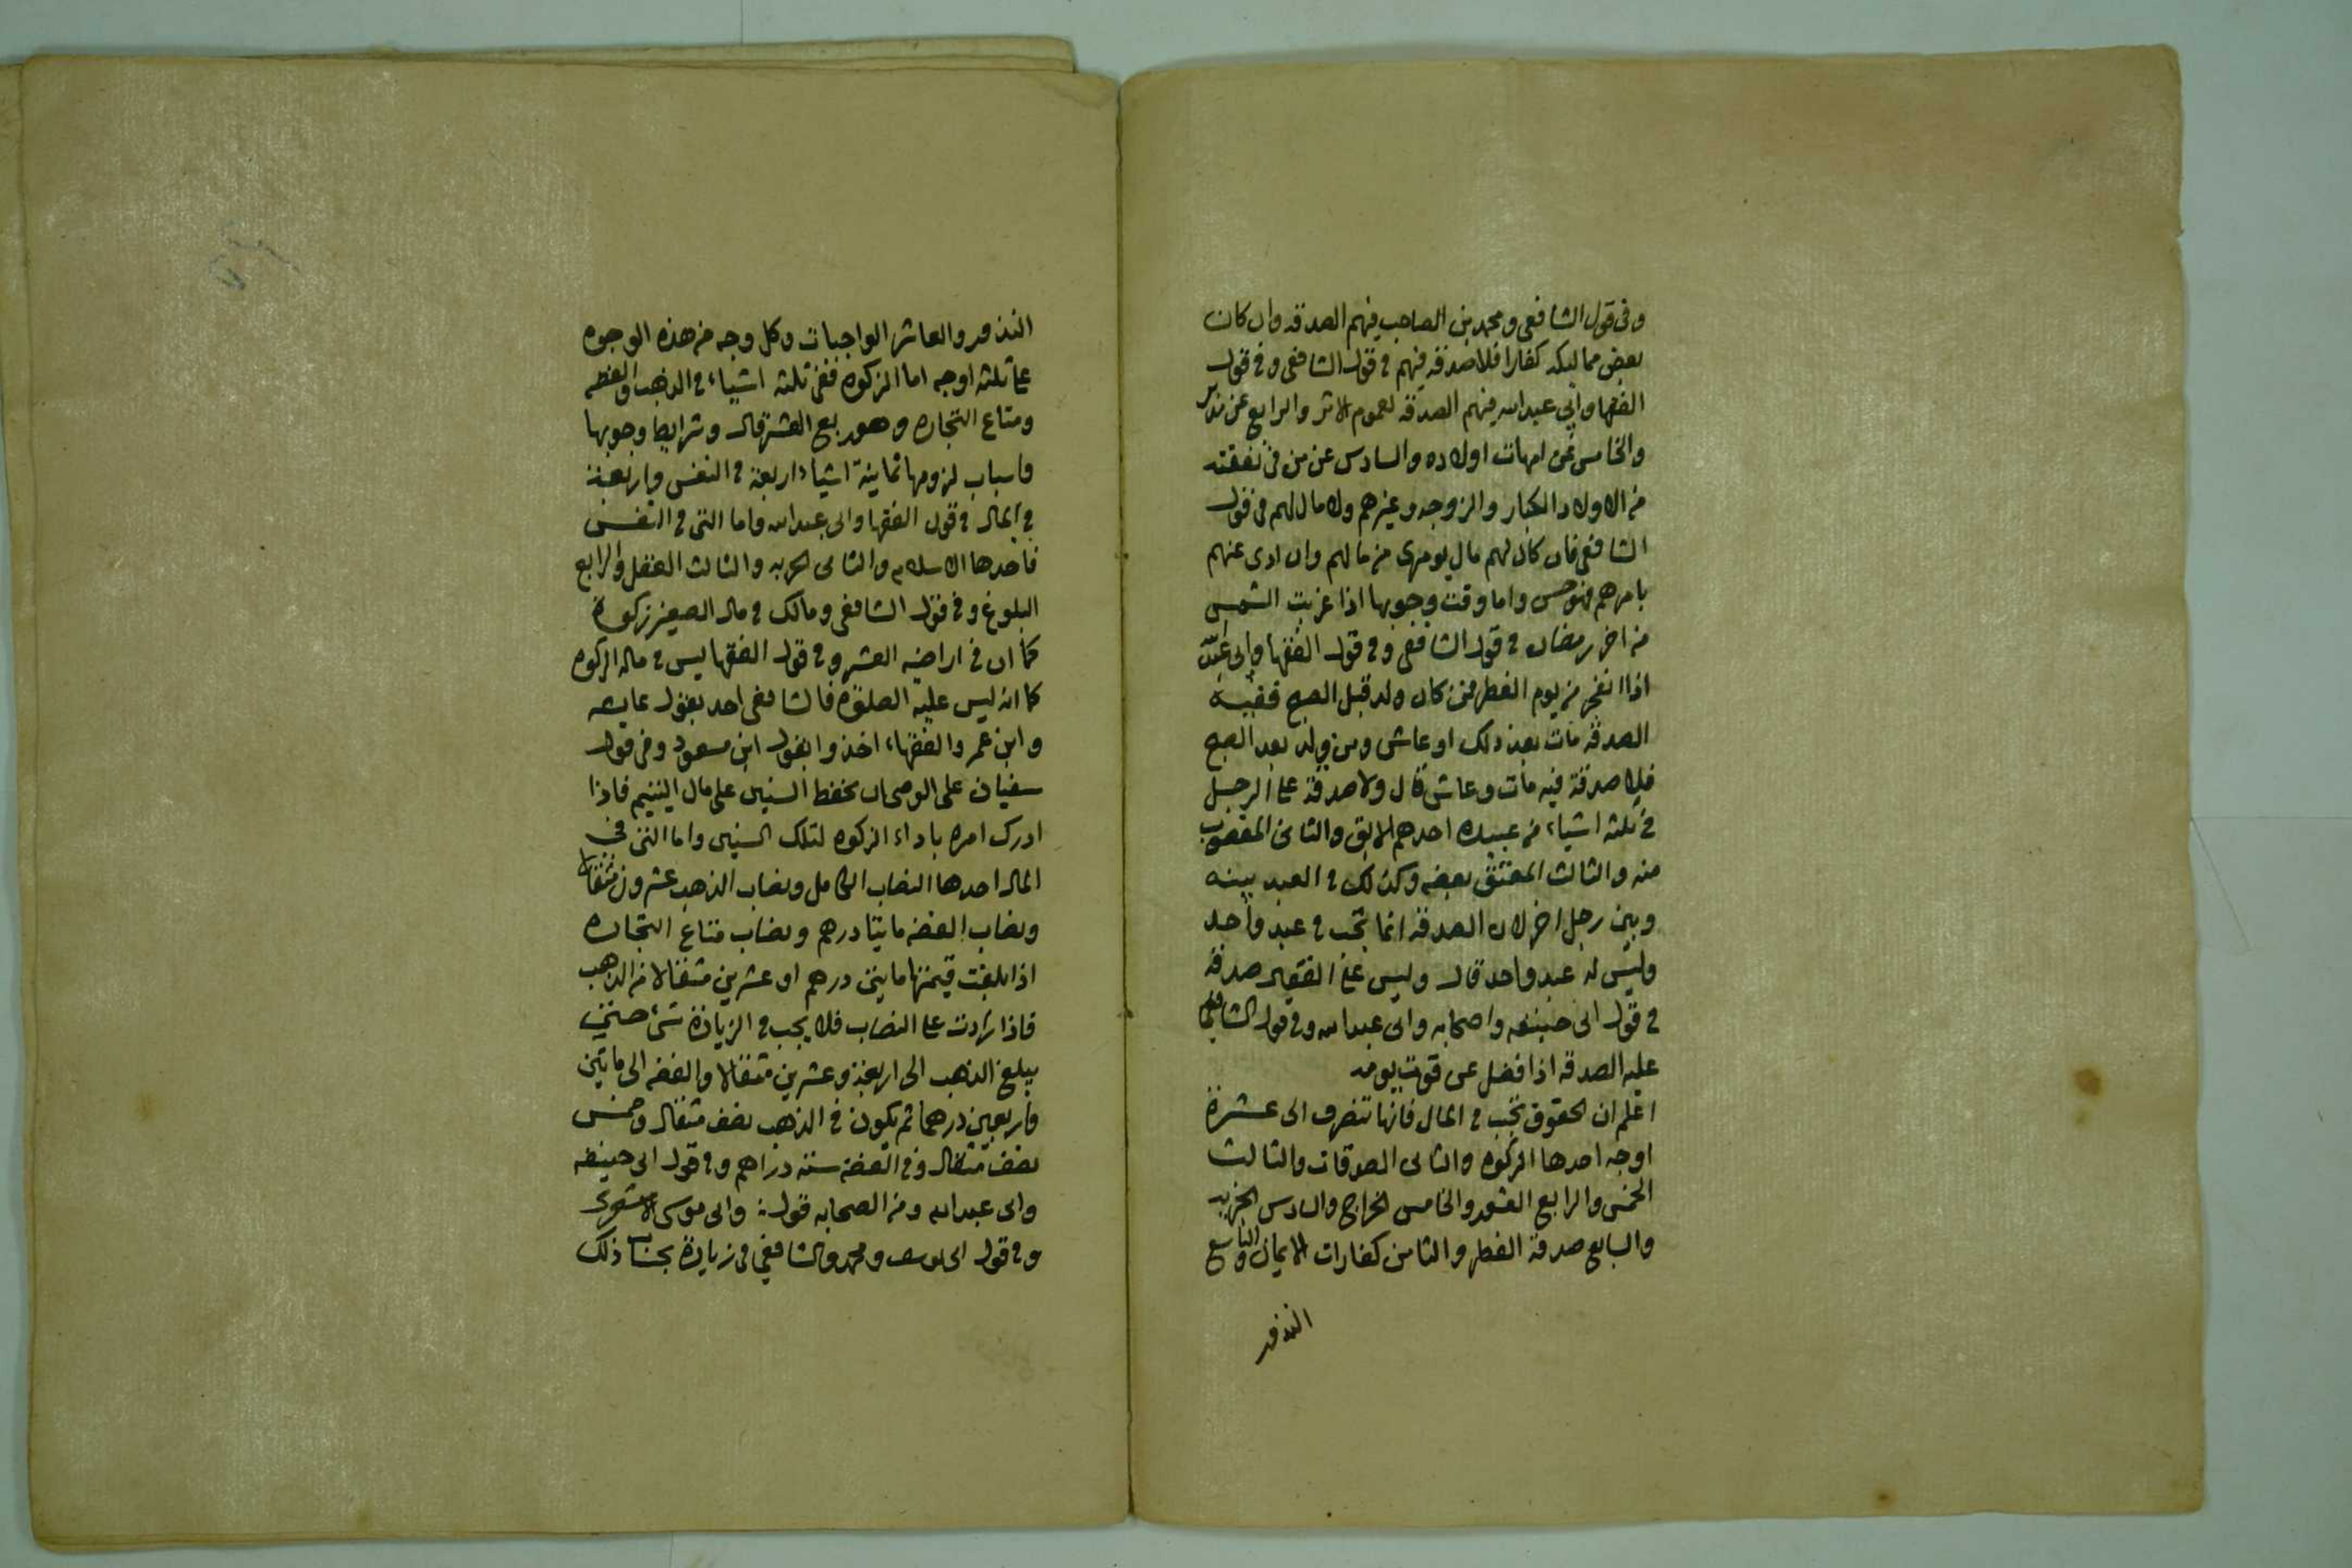 وفى قول الشافعى ومحمد بن الصاحب فيهم الصدقه وان كان
بعض مماليكه كفارا فلا صدقه فيهم فى قول الشافعى وفى قول
الفقها وابى عبدالله فيهم الصدقه لعموم الاثر والرابع عن مدبر
والخامس عن امهات اولاده والسادس عن من فى نفقته
من الاولاد الكبار والزوجه وغيرهم ولا مال لهم فى قول
الشافعى فان كان لهم مال يومرى من مالهم وان ادى عنهم
بامرهم فهو حسن واما وقت وجوبها اذا غربت الشمس
من اخر رمضان فى قول الشافعى وفى قول الفقها وابى عبدالله
اذا انفجر من يوم الفطر فمن كان ولد قبل الصبح ففيه
الصدقة مات بعد ذلك او عاش ومن ولد بعد الصبح
فلا صدقة فيه مات وعاش قال ولا صدقة على الرجل
فى ثلثه اشياء من عبيده احدهم الابق والثانى المغصوب
منه والثالث المعتق بعضه وكذلك فى العبد بينه
وبين رجل اخر لان الصدقه انما تجب فى عبد واحد
وليس له عبد واحد قال وليس على الفقير صدقه
فى قول ابى حنيفه واصحابه وابى عبدالله وفى قول الشافعى
عليه الصدقه اذا فضل عن قوت يومه
اعلم ان الحقوق تجب فى المال فانها تنصرف الى عشرة
اوجه احدها الزكوه والثانى الصدقات والثالث
الخمس والرابع العشور والخامس الخراج والسادس الجزيه
والسابع صدقة الفطر والثامن كفارات الايمان والتاسع
النذور
النذور والعاشر الواجبات وكل وجه من هذه الوجوه
على ثلثه اوجه اما الزكوه ففى ثلثه اشياء فى الذهب والفضه
ومتاع التجاره وهو ربع العشر قال وشرايط وجوبها
واسباب لزومها ثمانية اشياء اربعة فى النفس واربعة
فى المال فى قول الفقها وابى عبدالله واما التى فى النفس
فاحدها الاسلام والثانى الحريه والثالث العقل والرابع
البلوغ وفى قول الشافعى ومالك فى مال الصغير زكوة
كما ان فى اراضيه العشر وفى قول الفقها ليس فى ماله الزكوه
كما انه ليس عليه الصلوة فالشافعى اخذ بقول عايشه
وابن عمر والفقهاء اخذوا بقول ابن مسعود وفى قول
سفيان على الوصى ان يحفظ السنين على مال اليتيم فاذا
ادرك امره باداء الزكوه لتلك السنين واما التى فى
المال احدها النصاب الكامل ونصاب الذهب عشرون مثقالا
ونصاب الفضه مايتا درهم ونصاب متاع التجاره
اذا بلغت قيمتها مايتى درهم او عشرين مثقالا من الذهب
فاذا زادت على النصاب فلا يجب فى الزيادة شىء حتى
يبلغ الذهب الى اربعة وعشرين مثقالا والفضه الى مايتين
واربعين درهما ثم يكون فى الذهب نصف مثقال وخمس
نصف مثقال وفى الفضه ستة دراهم وفى قول ابى حنيفه
وابى عبدالله ومن الصحابه قول وابى موسى الاشعرى
وفى قول ابى يوسف ومحمد والشافعى فى زيادة بحساب ذلك